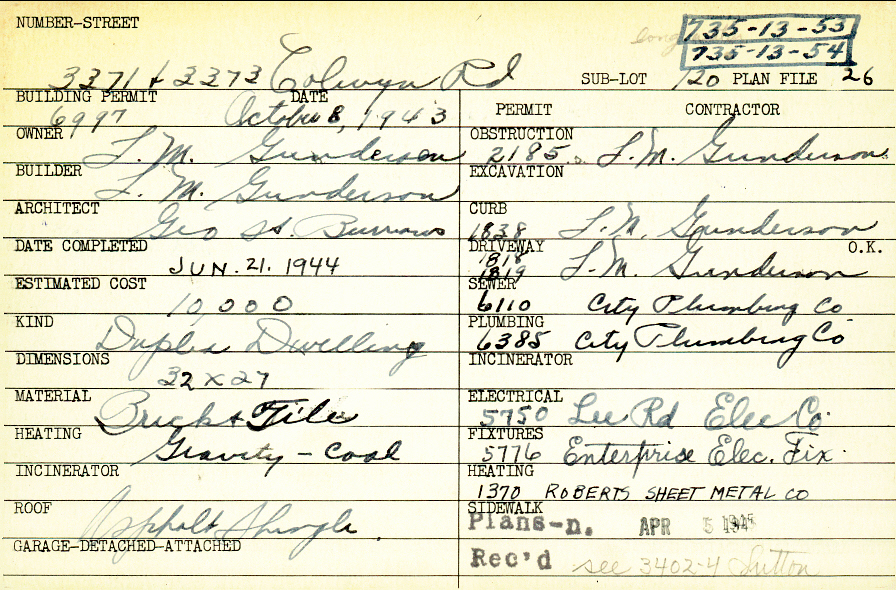 NUMBER-STREET
735-13-53
735-13-54
3371 & 3373 Colwyn Rd SUB-LOT 120 PLAN FILE 26
BUILDING PERMIT DATE
6997 October 8, 1943
OWNER L. M. Gunderson
BUILDER L. M. Gunderson
ARCHITECT Geo H. Burrows
DATE COMPLETED JUN. 21. 1944
ESTIMATED COST 10,000
KIND Duplex Dwelling
DIMENSIONS 32 X 27
MATERIAL Brick & Tile
HEATING Gravity - Coal
INCINERATOR
ROOF Asphalt Shingle
GARAGE-DETACHED-ATTACHED
PERMIT CONTRACTOR
OBSTRUCTION
2185 L. M. Gunderson
EXCAVATION
CURB
1838 L. M. Gunderson
DRIVEWAY O.K.
1818
1819 L. M. Gunderson
SEWER
6110 City Plumbing Co
PLUMBING
6385 City Plumbing Co
INCINERATOR
ELECTRICAL
5750 Lee Rd Elec Co.
FIXTURES
5776 Enterprise Elec. Fix.
HEATING
1370 ROBERTS SHEET METAL CO
SIDEWALK
Plans-n. APR 5
Rec'd see 3402-4 Sutton